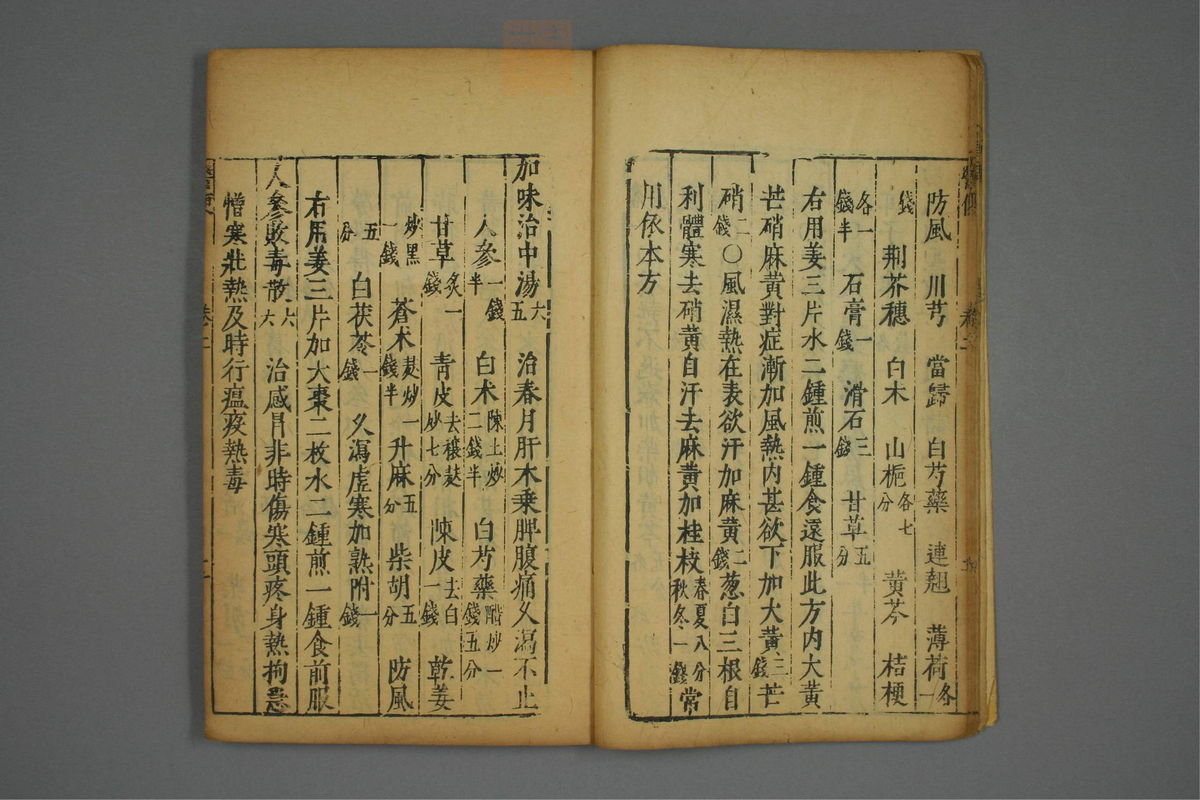 防風 川芎 當歸 白芍藥 連翹 薄荷各一
錢 荆芥穗 白木 山梔各七分 黄芩 桔梗
各一錢半 石膏一錢 滑石三錢 甘草五分
右用姜三片水二鍾煎一鍾食遠服此方内大黄
芒硝麻黄對症漸加風熱内甚欲下加大黄三錢芒
硝二錢○風濕熱在表欲汗加麻黄二錢葱白三根自
利體寒去硝黄自汗去麻黄加桂枝春夏八分秋冬一錢常
用依本方
加味治中湯六五 治春月肝木乘脾腹痛久瀉不止
人參一錢半 白术陳土炒二錢半 白芍藥醋炒一錢五分
甘草炙一錢 青皮去穰麸炒七分 陳皮去白一錢 乾姜
炒黑一錢 蒼术麸炒一錢半 升麻五分 柴胡五分 防風
五分 白茯苓一錢 久瀉虚寒加熟附一錢
右用姜三片加大棗二枚水二鍾煎一鍾食前服
人參敗毒散六六 治感冒非時傷寒頭疼身熱拘急
憎寒壯熱及時行瘟疫熱毒
卷二